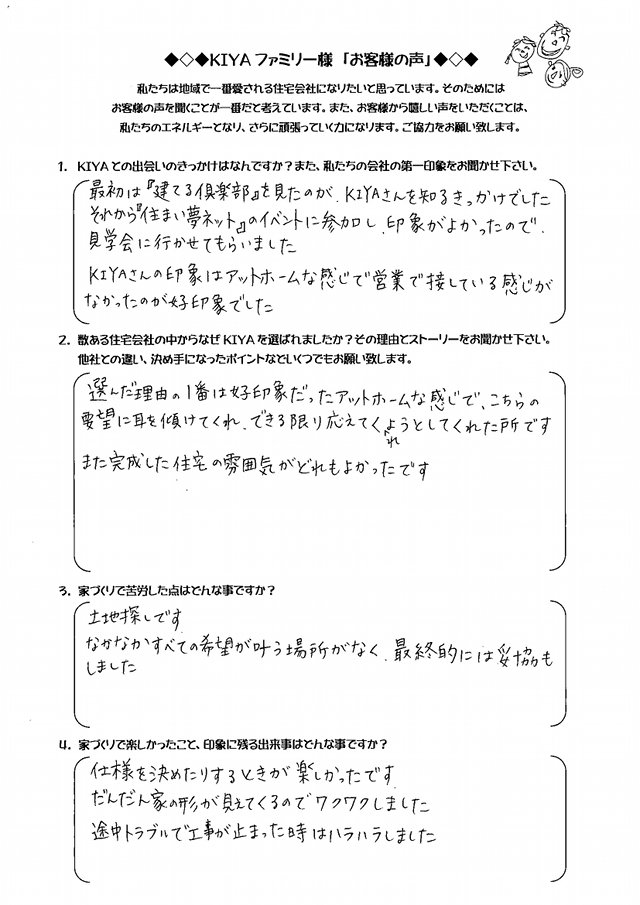 ◆◇◆KIYAファミリー様「お客様の声」◆◇◆
私たちは地域で一番愛される住宅会社になりたいと思っています。そのためには
お客様の声を聞くことが一番だと考えています。また、お客様から嬉しい声をいただくことは、
私たちのエネルギーとなり、さらに頑張っていく力になります。ご協力をお願い致します。
1. KIYAとの出会いのきっかけはなんですか？また、私たちの会社の第一印象をお聞かせ下さい。
最初は『建てる倶楽部』を見たのが、KIYAさんを知るきっかけでした
それから『住まい夢ネット』のイベントに参加し、印象がよかったので、
見学会に行かせてもらいました
KIYAさんの印象はアットホームな感じで営業で接している感じが
なかったのが好印象でした
2. 数ある住宅会社の中からなぜKIYAを選ばれましたか？その理由とストーリーをお聞かせ下さい。
他社との違い、決め手になったポイントなどいくつでもお願い致します。
選んだ理由の1番は好印象だったアットホームな感じで、こちらの
要望に耳を傾けてくれ、できる限り応えてくれようとしてくれた所です
また完成した住宅の雰囲気がどれもよかったです
3. 家づくりで苦労した点はどんな事ですか？
土地探しです
なかなかすべての希望が叶う場所がなく、最終的には妥協も
しました
4. 家づくりで楽しかったこと、印象に残る出来事はどんな事ですか？
仕様を決めたりするときが楽しかったです
だんだん家の形が見えてくるのでワクワクしました
途中トラブルで工事が止まった時はハラハラしました